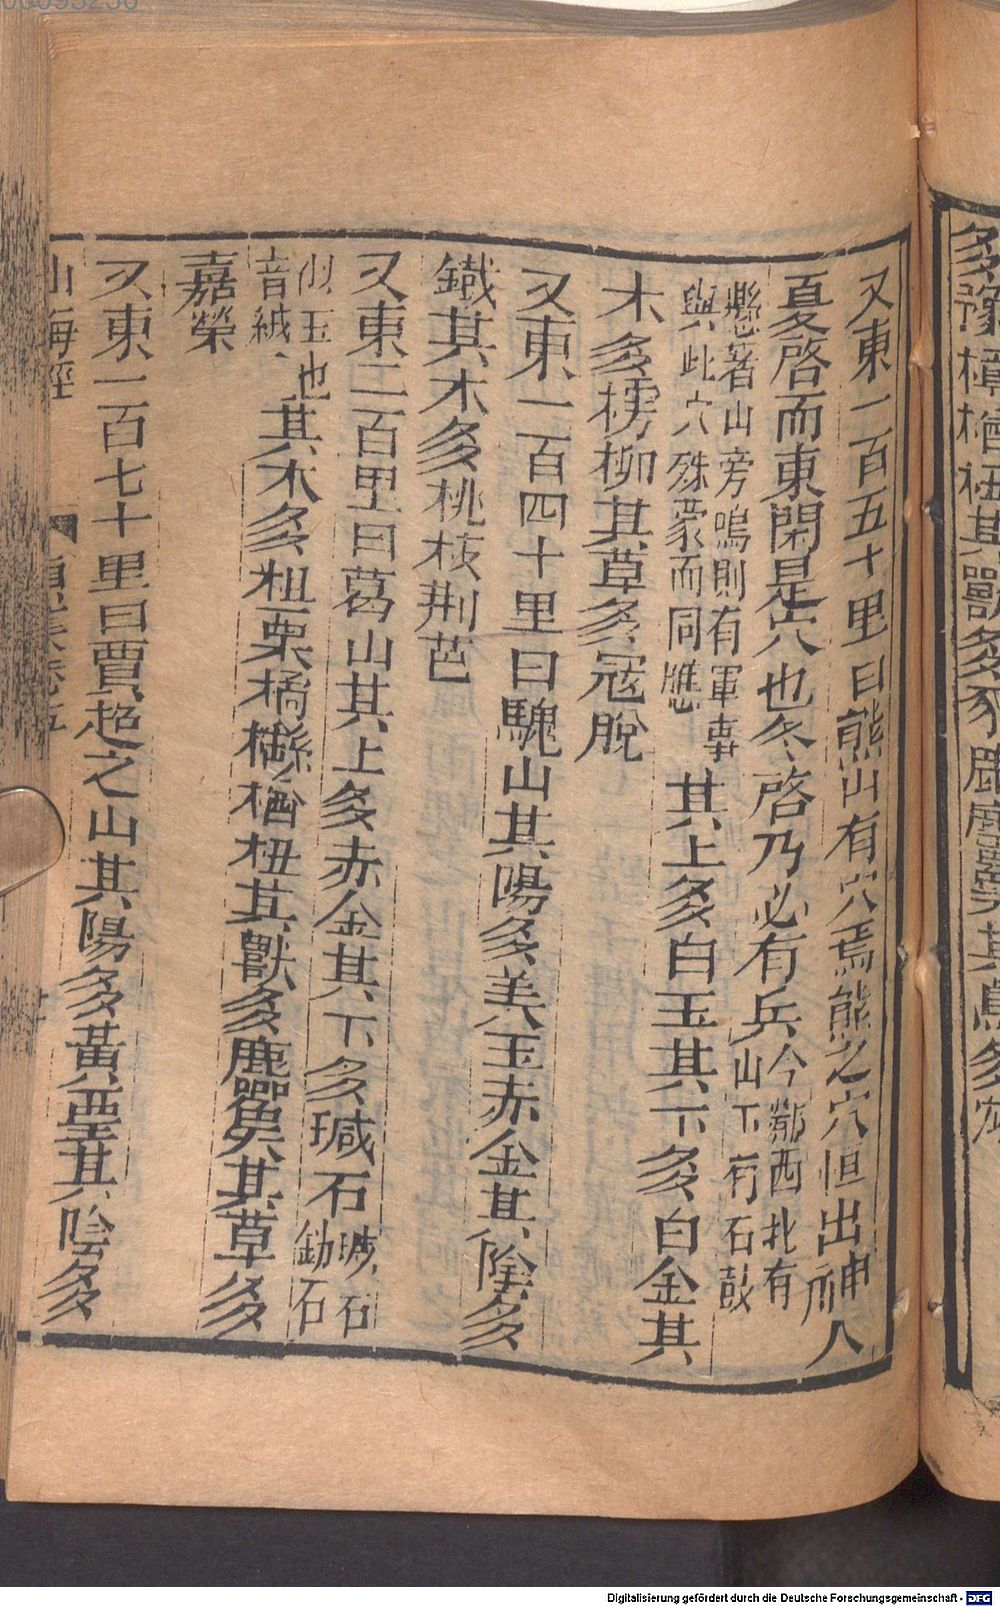 又東一百五十里曰熊山有穴焉熊之穴恒出神人
夏啓而東閉是穴也冬啓乃必有兵今鄴西北有
山下有石鼓
懸著山旁鳴則有軍事
與此穴殊䝉而同應
其上多白玉其下多白金其
木多樗柳其草多冦脫
又東一百四十里曰騩山其陽多美玉赤金其隂多
鐵其木多桃枝荆芭
又東二百里曰葛山其上多赤金其下多瑊石瑊石
勁石
似玉也
音緘
其木多柤栗橘櫾楢杻其獸多麢㚟其草多
嘉榮
又東一百七十里曰賈超之山其陽多黃堊其隂多
山海經
多豫樟楢杻其獸多豕鹿麢㚟其鳥多
00093236
Digitalisierung gefördert durch die Deutsche Forschungsgemeinschaft - DFG